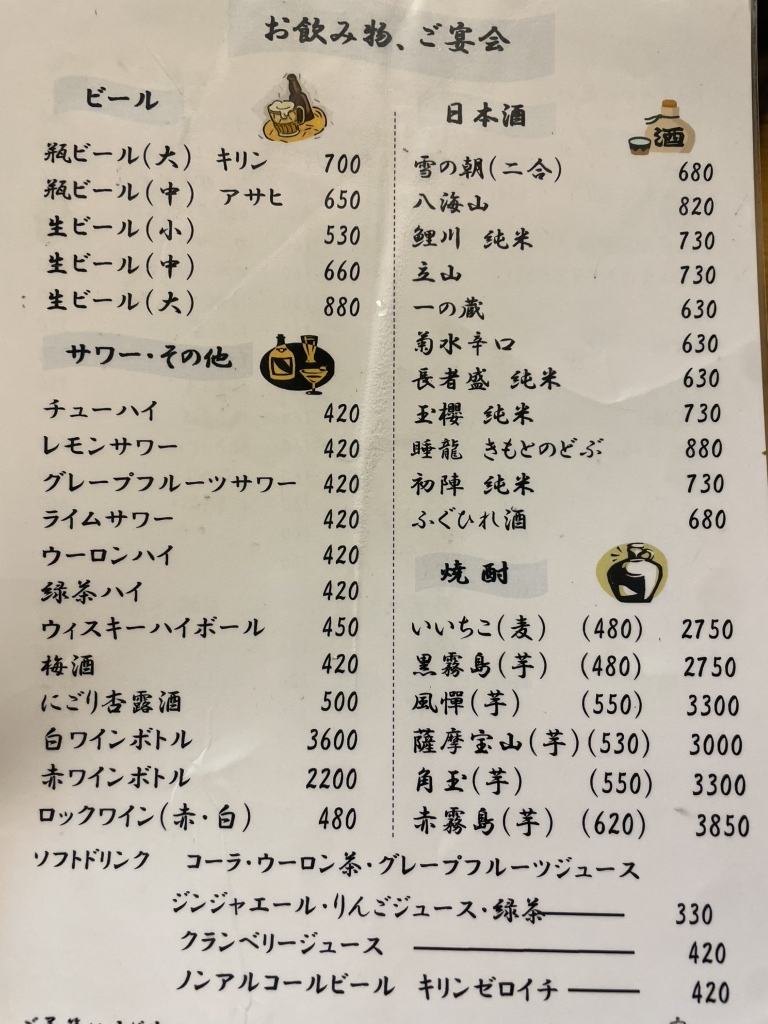 お飲み物、ご宴会
ビール
瓶ビール(大) キリン 700
瓶ビール(中) アサヒ 650
生ビール(小) 530
生ビール(中) 660
生ビール(大) 880
サワー・その他
チューハイ 420
レモンサワー 420
グレープフルーツサワー 420
ライムサワー 420
ウーロンハイ 420
緑茶ハイ 420
ウィスキーハイボール 450
梅酒 420
にごり杏露酒 500
白ワインボトル 3600
赤ワインボトル 2200
ロックワイン(赤・白) 480
日本酒
酒
雪の朝(二合) 680
八海山 820
鯉川 純米 730
立山 730
一の蔵 630
菊水辛口 630
長者盛 純米 630
玉櫻 純米 730
睡龍 きもとのどぶ 880
初陣 純米 730
ふぐひれ酒 680
焼酎
いいちこ(麦) (480) 2750
黒霧島(芋) (480) 2750
風憚(芋) (550) 3300
薩摩宝山(芋)(530) 3000
角玉(芋) (550) 3300
赤霧島(芋) (620) 3850
ソフトドリンク コーラ・ウーロン茶・グレープフルーツジュース
ジンジャエール・りんごジュース・緑茶 330
クランベリージュース 420
ノンアルコールビール キリンゼロイチ 420